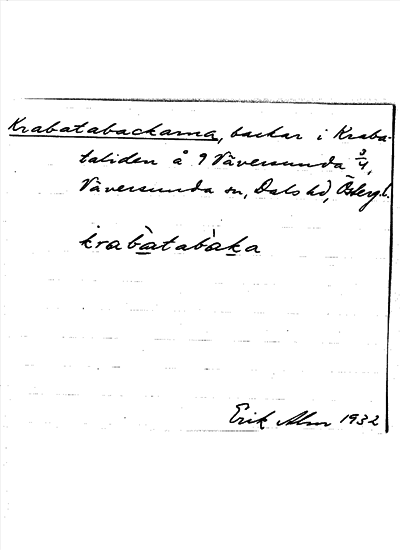 Krabatabackarna, backar i Kraba-
taliden å 9 Väversunda 3/4,
Väversunda sn, Dals hd, Östergl.
krabàtabàka
Erik Abr 1932